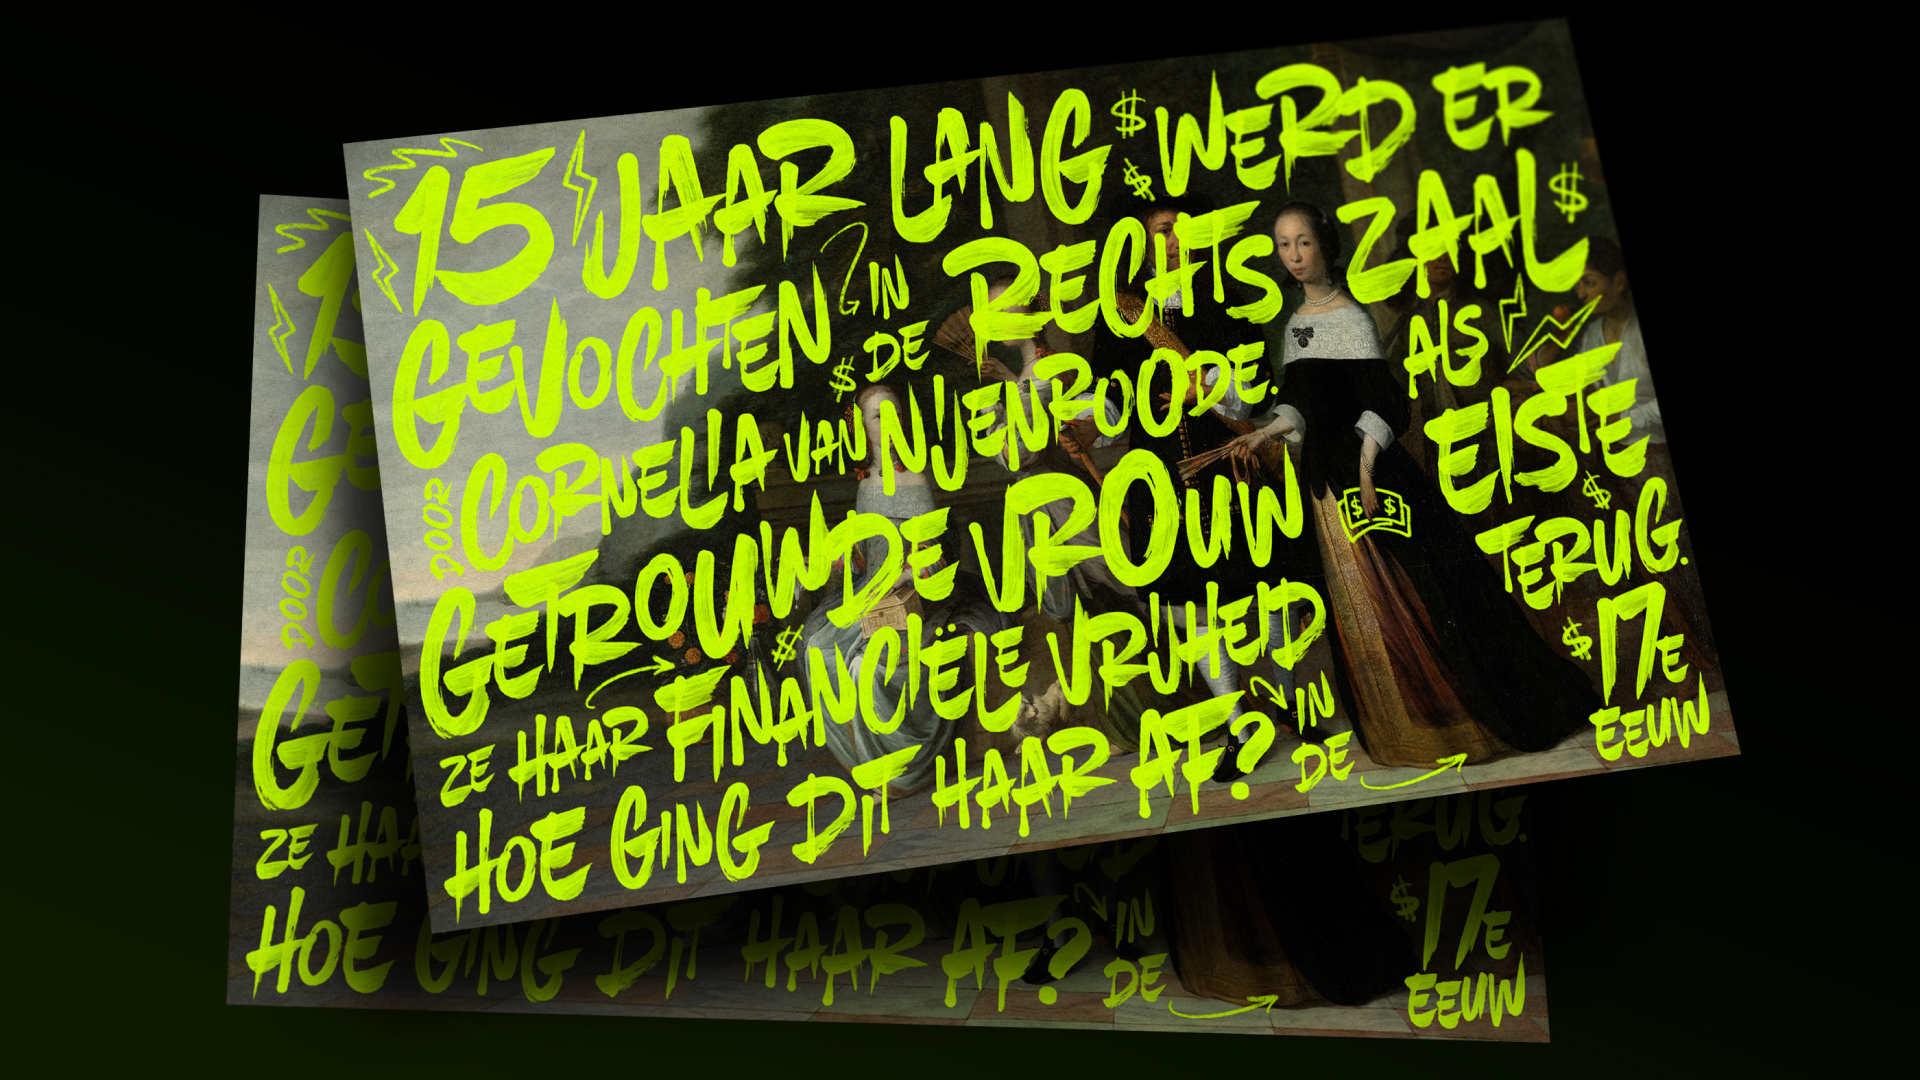 15 JAAR LANG $ WERD ER
$
GEVOCHTEN IN DE RECHTSZAAL $
DOOR $ CORNELIA VAN NIJENROODE. ALS
GETROUWDE VROUW $ $ EISTE
ZE HAAR $ FINANCIËLE VRIJHEID $ TERUG.
HOE GING DIT HAAR AF? IN DE $ 17E
EEUW
1
GE
DOOR CO
GET
ZE HAA TERUG.
HOE GING DIT HAAR AF? IN DE $ 17E
EEUW